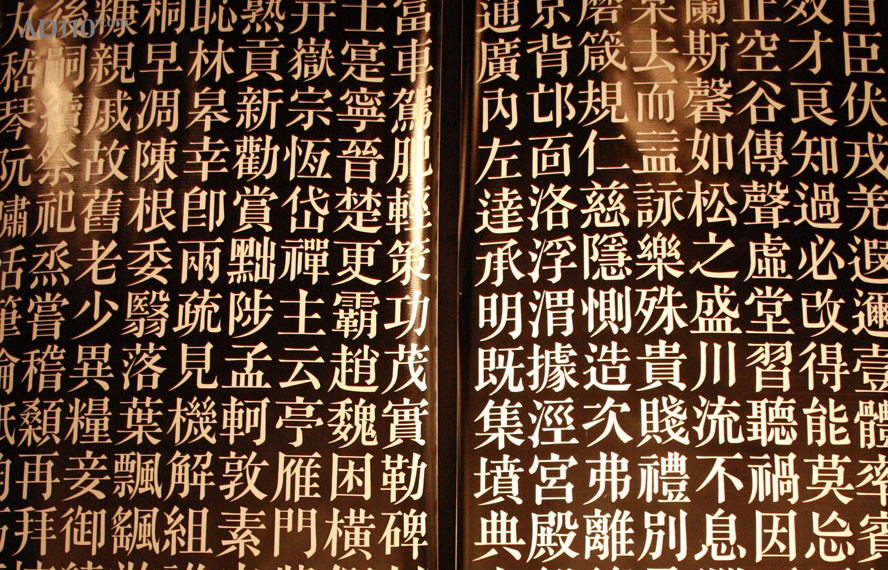 首臣伏戎羌遐邇壹體率賓
效才良知過必改得能莫忘
正空谷傳聲虛堂習聽禍因
蘭斯馨如松之盛川流不息
棠去而益詠樂殊貴賤禮別
磨箴規仁慈隱惻造次弗離
京背邙面洛浮渭據涇宮殿
通廣內左達承明既集墳典
富車駕肥輕策功茂實勒碑
士寔寧晉楚更霸趙魏困橫
并嶽宗恆岱禪主云亭雁門
熟貢新勸賞黜陟孟軻敦素
恥林皋幸即兩疏見機解組
桐早凋陳根委翳落葉飄颻
糠親戚故舊老少異糧妾御
後嗣續祭祀烝嘗稽顙再拜
丸嵇琴阮嘯恬筆倫紙鈞巧